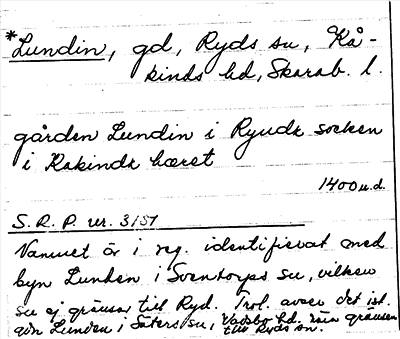 *Lundin, gd, Ryds sn, Kå-
kinds hd, Skarab. l.
gården Lundin i Ryudh socken
i Kakindh hæret
1400 u.d.
S.R.P. nr. 3151
Namnet är i reg. identifierat med
byn Lunden i Sventorps sn, vilken
sn ej gränsar till Ryd. Trol. avser det ist.
gdn Lunden i Säters sn, Vadsbo hd. nära gränsen
till Ryds sn.